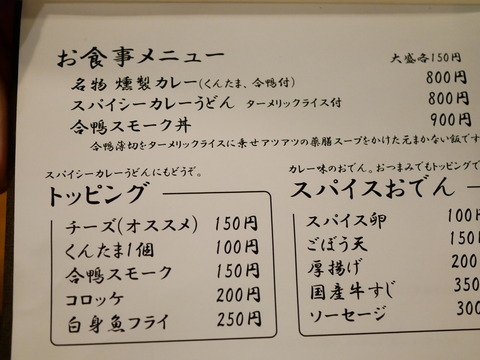 お食事メニュー 大盛各150円
名物 燻製カレー(くんたま、合鴨付) 800円
スパイシーカレーうどん ターメリックライス付 800円
合鴨スモーク丼 900円
合鴨薄切をターメリックライスに乗せアツアツの薬膳スープをかけた元まかない飯です
スパイシーカレーうどんにもどうぞ。
トッピング
チーズ(オススメ) 150円
くんたま1個 100円
合鴨スモーク 150円
コロッケ 200円
白身魚フライ 250円
カレー味のおでん。おつまみでもトッピングで
スパイスおでん
スパイス卵 100円
ごぼう天 150
厚揚げ 200
国産牛すじ 350
ソーセージ 300